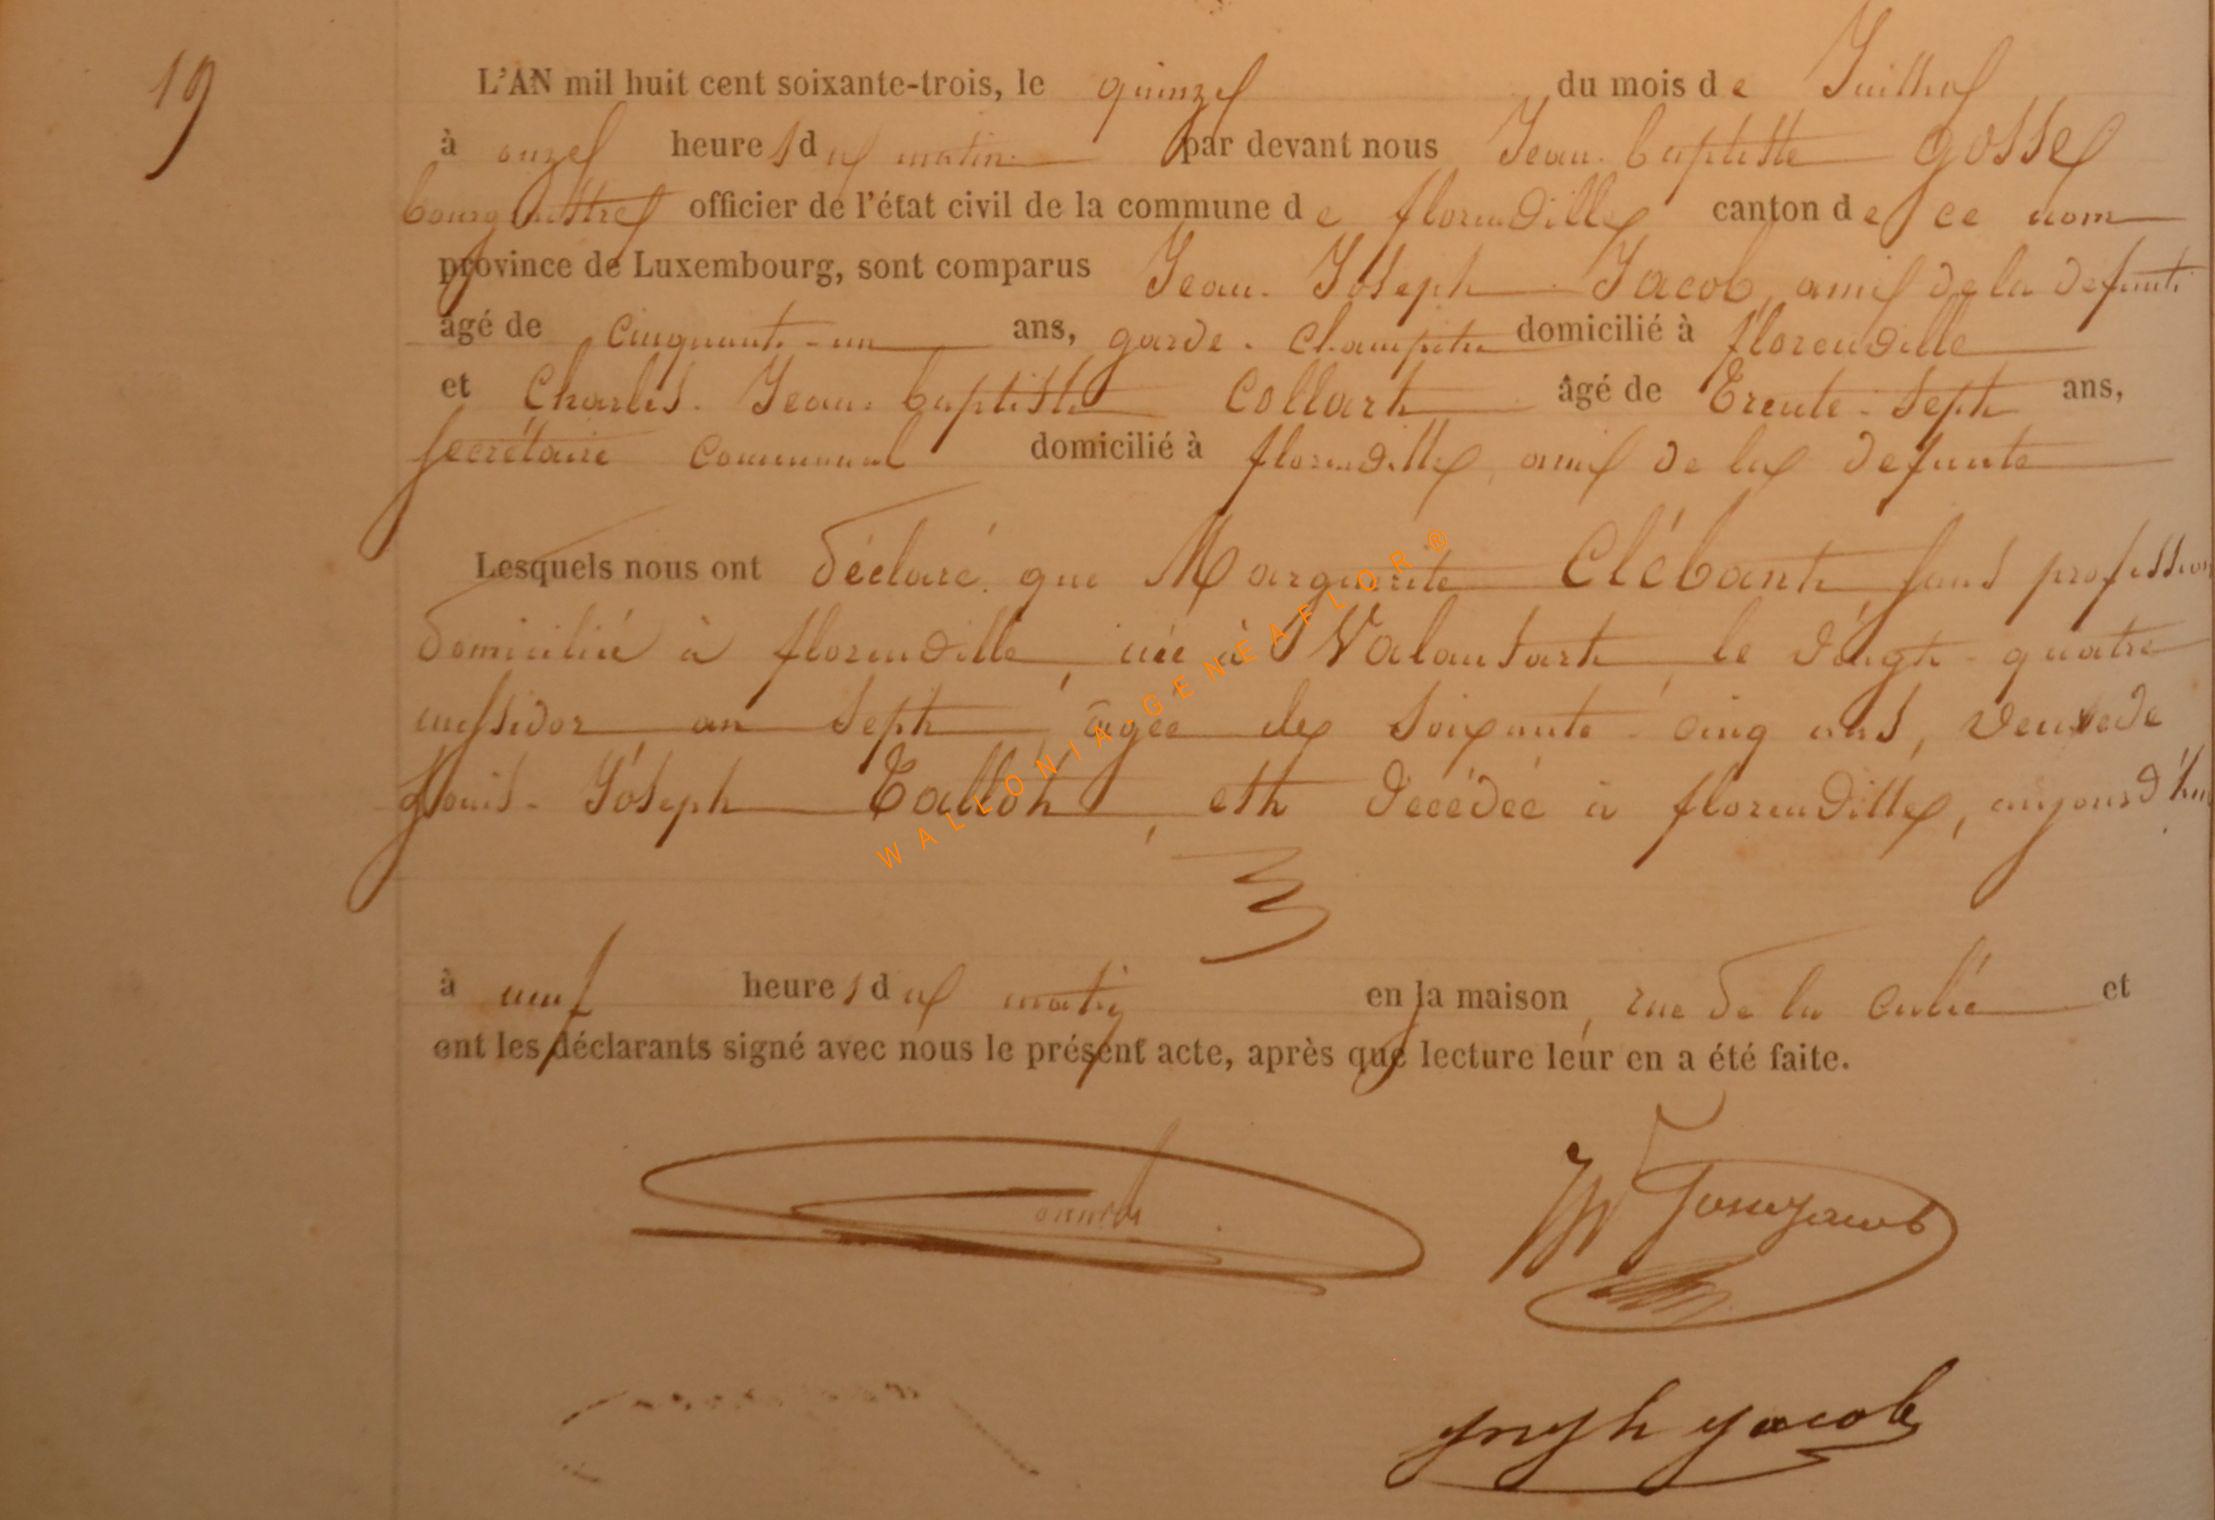 19
L'AN mil huit cent soixante-trois, le quinze du mois de Juillet
à onze heures du matin par devant nous Jean-baptiste Gosse
bourgmestre officier de l'état civil de la commune de florenville canton de ce nom
province de Luxembourg, sont comparus Jean-Joseph Jacob, ami de la defunte
âgé de cinquante-un ans, garde-champetre domicilié à florenville
et Charles-Jean-baptiste Collart âgé de Trente-sept ans,
secrétaire communal domicilié à florenville, ami de la defunte
Lesquels nous ont déclaré que Marguerite Clébant, sans profession
domiciliée à florenville, née à Walansart, le vingt-quatre
messidor an sept, âgée de soixante-cinq ans, veuve de
Louis-Joseph Tallot, est décédée à florenville, aujourd'hui
à neuf heures du matin en la maison, rue de la culée et
ont les déclarants signé avec nous le présent acte, après que lecture leur en a été faite.
Joseph Jacob
WALLONIA-GENEAFLOR®